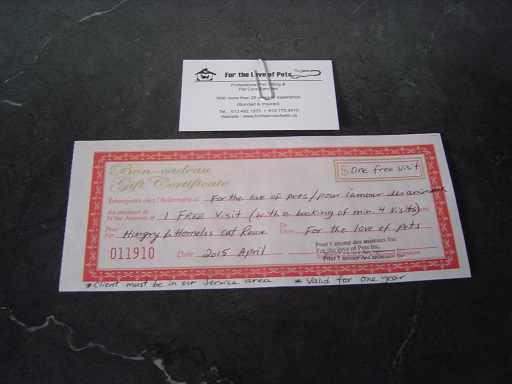 For the Love of Pets
Professional Pet Sitting &
Pet Care Services
With more than 25 years of experience
(Bonded & Insured)
Website : www.fortheloveofpets.ca
Bon-cadeau
Gift Certificate
$ One free visit
Échangeable chez / Redeemable at For the love of pets/pour l'amour des animaux
Au montant de
In the Amount of 1 FREE Visit (with a booking of min. 4 Visits)
Pour
For Hungry & Homeless cat Rescue
De
From For the love of pets
011910
Date 2015 April
Pour l'amour des animaux Inc.
For the love of Pets Inc.
Pour l'amour des animaux Inc
*Client must be in our service area * Valid for one year